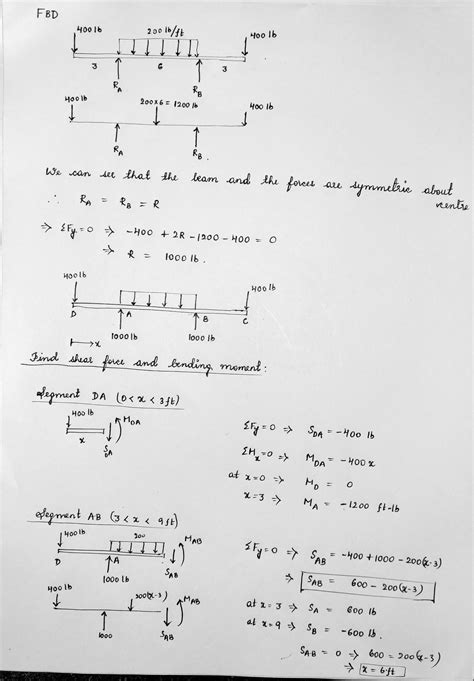 FBD
400 lb 200 lb/ft 400 lb
3 6 3
R_A R_B
400 lb 200×6 = 1200 lb 400 lb
R_A R_B
We can see that the beam and the forces are symmetric about
centre
∴ R_A = R_B = R
⇒ ΣFy = 0 ⇒ -400 + 2R - 1200 - 400 = 0
⇒ R = 1000 lb.
400 lb 400 lb
D A B C
1000 lb 1000 lb
x
Find shear force and bending moment:
Segment DA (0 < x < 3 ft)
400 lb M_DA
x S_DA
ΣFy = 0 ⇒ S_DA = -400 lb
ΣM_x = 0 ⇒ M_DA = -400 x
at x = 0 ⇒ M_D = 0
x = 3 ⇒ M_A = -1200 ft-lb
Segment AB (3 < x < 9 ft)
400 lb 200 M_AB
D A S_AB
1000 lb
400 lb 200(x-3) M_AB
1000 S_AB
ΣFy = 0 ⇒ S_AB = -400 + 1000 - 200(x-3)
⇒ S_AB = 600 - 200(x-3)
at x = 3 ⇒ S_A = 600 lb
at x = 9 ⇒ S_B = -600 lb.
S_AB = 0 ⇒ 600 = 200(x-3)
⇒ x = 6 ft